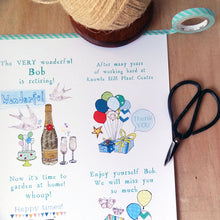 The VERY wonderful
Bob
is retiring!
Wonderful
After many years
of working hard at
Knowle Hill Plant Centre
Thank
you!
Now it's time to
garden at home!
whoop!
Happy times!
Enjoy yourself Bob.
We will miss you
so much